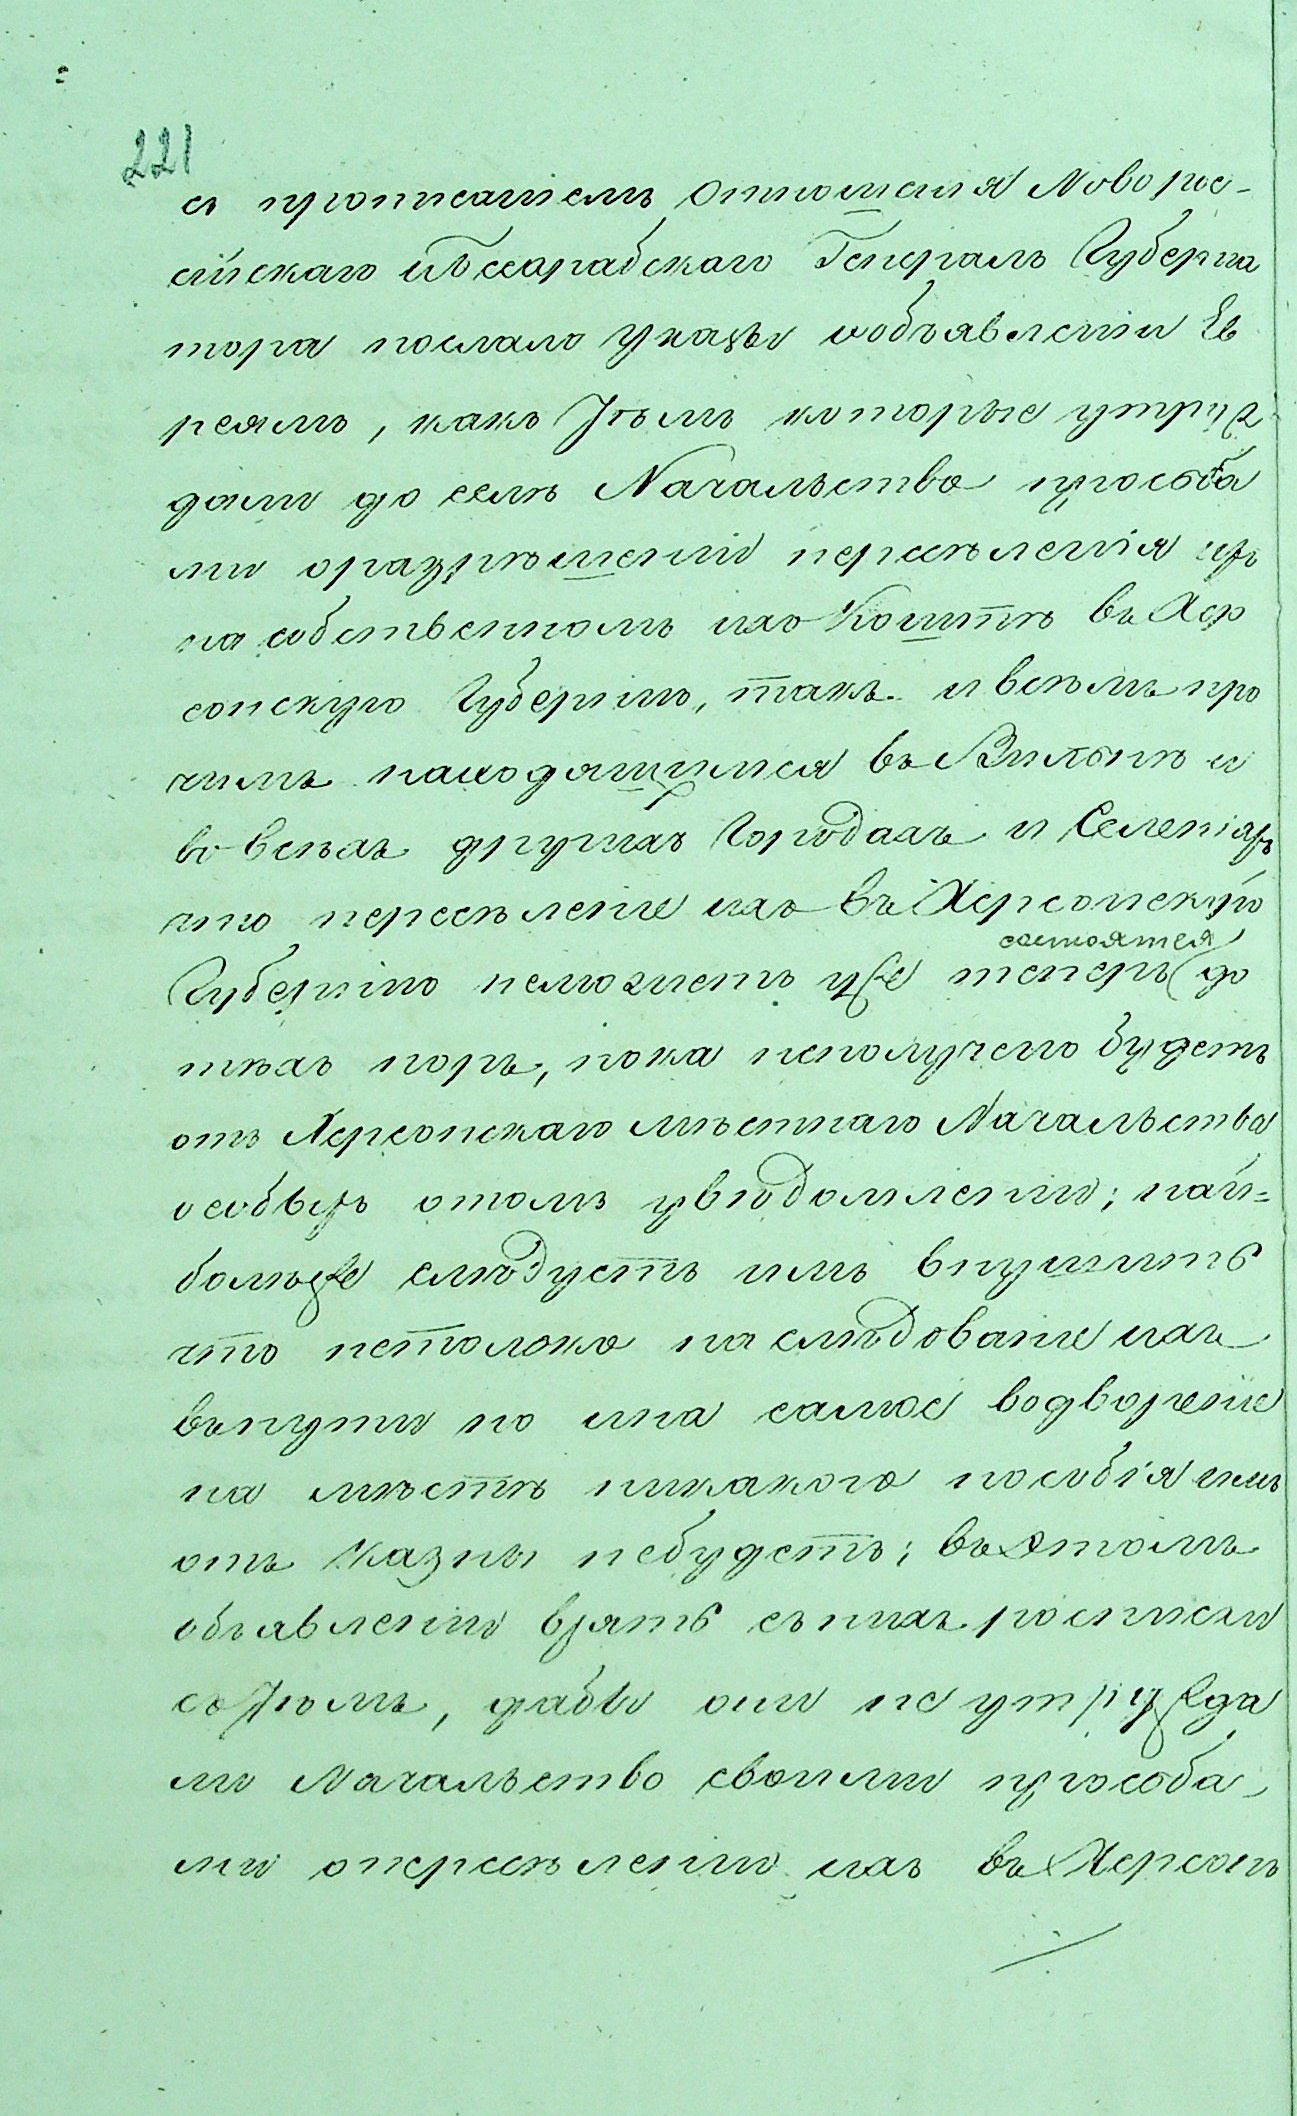 221
съ прописаніемъ отношенія Новорос-
сійскаго и Бессарабскаго Генералъ Губерна
тора послало указы и объявленіи Ев
реямъ, какъ тѣмъ которые утруж
дали до селѣ Начальство просьба
ми о разрѣшеніи переселенія ихъ
на собственномъ ихъ Коштѣ въ Хер
сонскую Губернію, такъ и всѣмъ про
чимъ находящимся въ Вильнѣ и
во всѣхъ другихъ Городахъ и Селеніяхъ
что переселеніе ихъ въ Херсонскую
состоятся
Губернію неможетъ уже теперь до
тѣхъ поръ, пока неполучено будетъ
отъ Херсонскаго мѣстнаго Начальства
особыхъ отомъ увѣдомленіи; най=
болѣе же слѣдуетъ имъ внушить
что нетолько на слѣдованіе ихъ
въ пути но ина самое водвореніе
на мѣстѣ никакого пособія имъ
отъ Казны небудетъ; въ этомъ
объявленіи взять съ нихъ росписки
съ тѣмъ, дабы они не утружда
ли Начальство своими просьба
ми опереселеніи ихъ въ Херсонъ